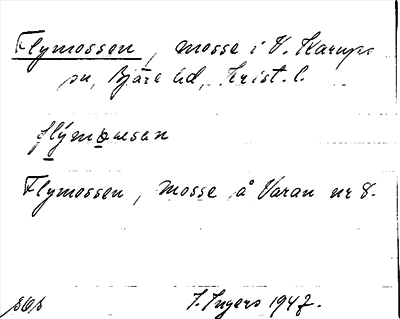 Flymossen, mosse i V. Karups
sn, Bjäre hd, Krist. l.
Flymossen, mosse å Varan nr 8.
I. Ingers 1947.